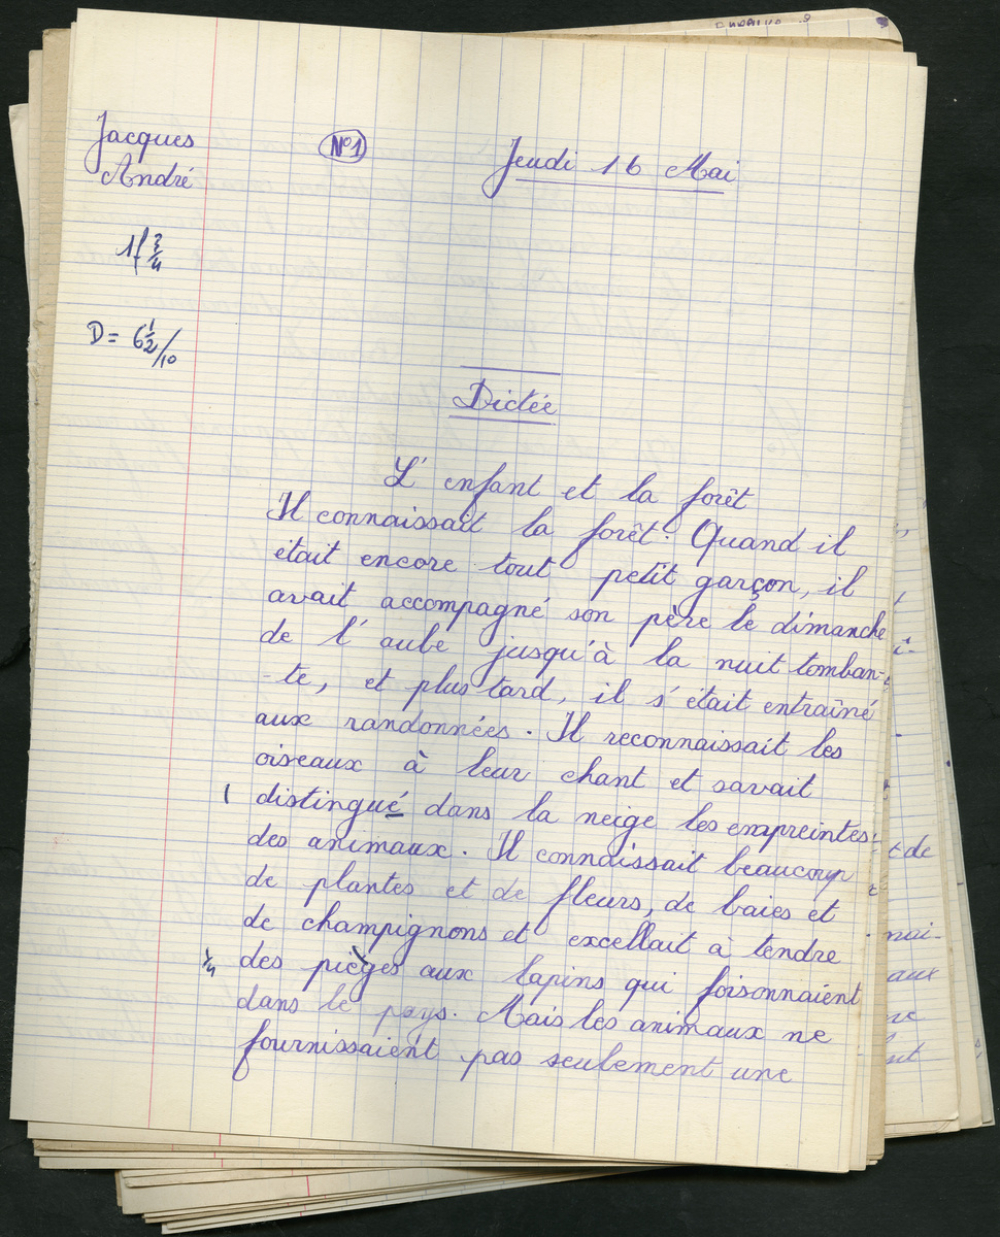 Jacques
André
N°1
Jeudi 16 Mai
1f 3/4
D = 6 1/2 /10
Dictée
L'enfant et la forêt
Il connaissait la forêt. Quand il
était encore tout petit garçon, il
avait accompagné son père le dimanche
de l'aube jusqu'à la nuit tomban-
-te, et plus tard, il s'était entraîné
aux randonnées. Il reconnaissait les
oiseaux à leur chant et savait
1 distingué dans la neige les empreintes
des animaux. Il connaissait beaucoup
de plantes et de fleurs, de baies et
de champignons et excellait à tendre
1/4 des pièges aux lapins qui foisonnaient
dans le pays. Mais les animaux ne
fournissaient pas seulement une
t de
nai-
aux